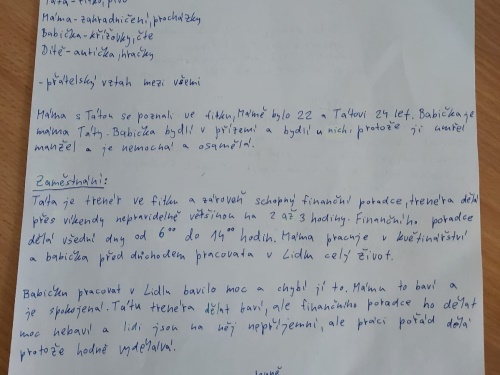 Táta-fitko, pivo
Máma-zahradničení, procházky
Babička-křížovky, čte
Dítě-autíčka, hračky
-přátelský vztah mezi všemi
Máma s Tátou se poznali ve fitku, Mámě bylo 22 a Tátovi 24 let. Babička je
máma Táty. Babička bydlí v přízemí a bydlí u nich protože jí umřel
manžel a je nemocná a osamělá.
Zaměstnání:
Táta je trenér ve fitku a zároveň schopný finanční poradce, trenéra dělá
přes víkendy nepravidelně většinou na 2 až 3 hodiny. Finančního poradce
dělá všední dny od 6⁰⁰ do 14⁰⁰ hodin. Máma pracuje v květinářství
a babička před důchodem pracovala v Lidlu celý život.
Babičku pracovat v Lidlu bavilo moc a chybí jí to. Mámu to baví a
je spokojená. Tátu trenéra dělat baví, ale finančního poradce ho dělat
moc nebaví a lidi jsou na něj nepříjemní, ale práci pořád dělá
protože hodně vydělává.